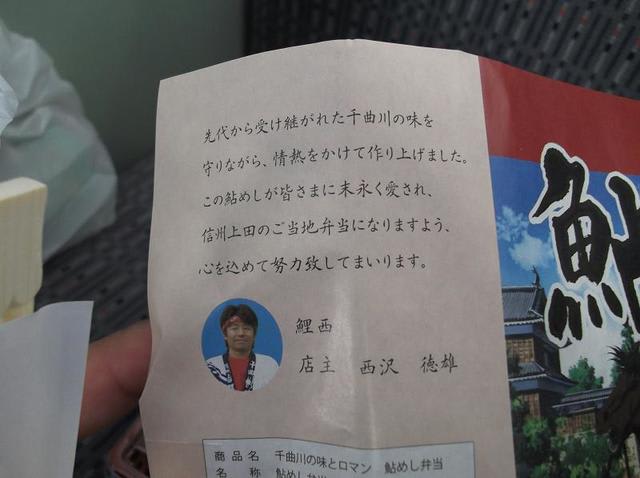 先代から受け継がれた千曲川の味を
守りながら、情熱をかけて作り上げました。
この鮎めしが皆さまに末永く愛され、
信州上田のご当地弁当になりますよう、
心を込めて努力致してまいります。
鯉西
店主 西沢 徳雄
商品名 千曲川の味とロマン 鮎めし弁当
名称 鮎めし弁当
鮎